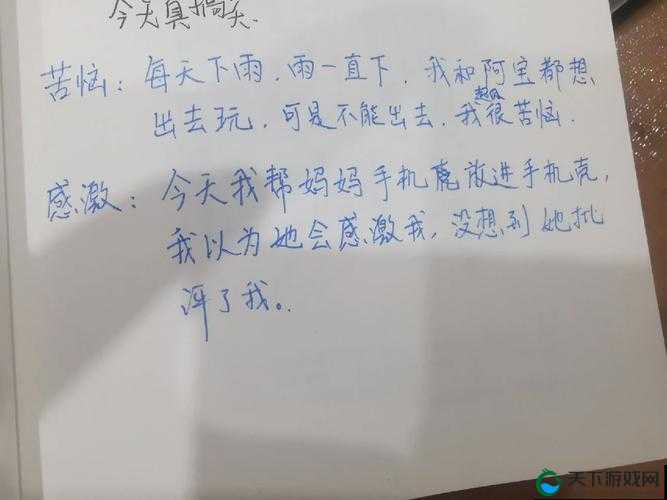 今天真搞笑.
苦恼：每天下雨，雨一直下，我和阿宝都想
出去玩，可是不能出去，我很苦恼.
感激：今天我帮妈妈手机竟放进手机壳，
我以为她会感激我，没想到她批
评了我。
天下游戏网